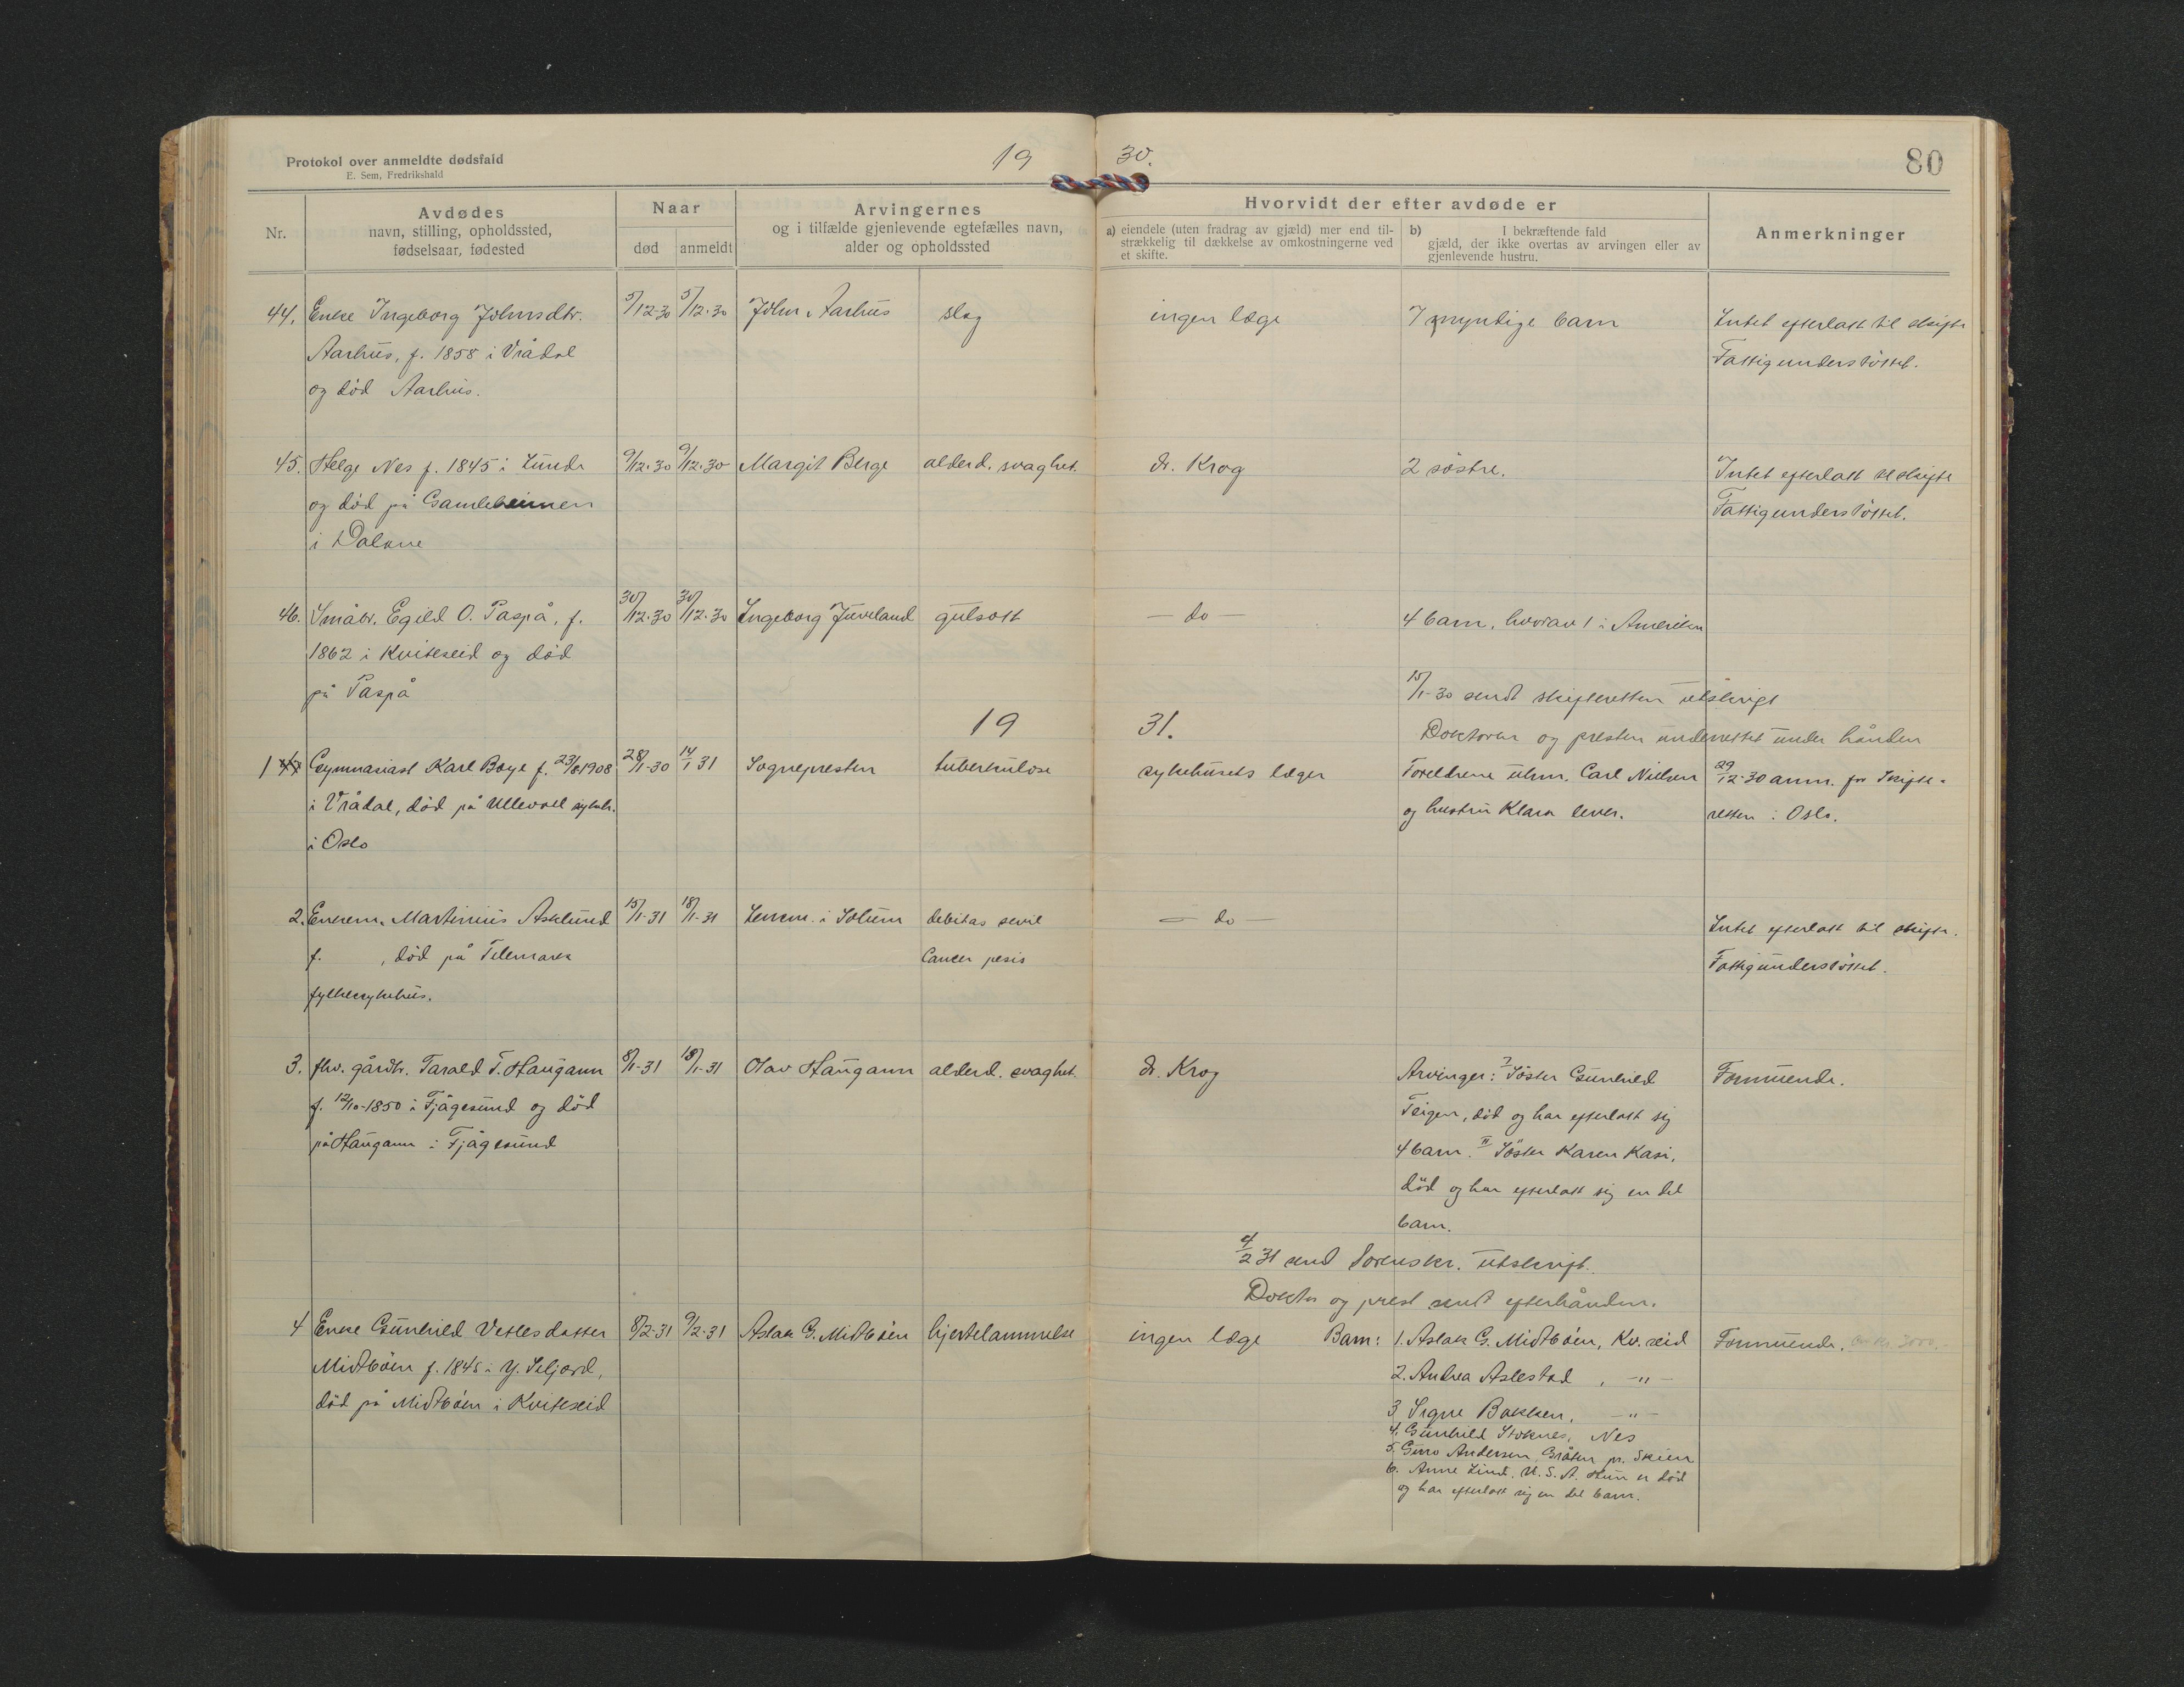 Protokol over anmeldte dødsfald
E. Sem, Fredrikshald
19 30.
80
Nr.
Avdødes
navn, stilling, opholdssted,
fødselsaar, fødested
Naar
død
anmeldt
Arvingernes
og i tilfælde gjenlevende egtefælles navn,
alder og opholdssted
Hvorvidt der efter avdøde er
a) eiendele (uten fradrag av gjæld) mer end til-
strækkelig til dækkelse av omkostningerne ved
et skifte.
b) I bekræftende fald
gjæld, der ikke overtas av arvingen eller av
gjenlevende hustru.
Anmerkninger
44. Enke Ingeborg Johnsdtr. 5/12-30 5/12-30 John Aarhus slag ingen læge 7 myndige barn Intet efterlatt til skifte
Aarhus, f. 1858 i Vrådal Fattigunderstöttet.
og död Aarhus.
45. Helge Nes f. 1845 i Lunde 9/12-30 9/12-30 Margit Berge alderd. svaghet. dr. Krog 2 söstre. Intet efterlatt til skifte
og död på Gamleheimen Fattigunderstöttet.
i Dalane
46. Småbr. Egild O. Paspå, f. 30/12-30 30/12-30 Ingeborg Juveland gulsott — do — 4 barn, hvorav 1 i Amerika
1862 i Kviteseid og död
på Paspå
15/1-30 sendt skifteretten utskrigt
19 31.
Doktoren og presten underrettet under hånden
1 Gymnasiast Karl Boye f. 23/8 1908 28/1-30 14/1 31 Sognepresten tuberkulose sykehusets læger Foreldrene uhrm. Carl Nielsen 29/12-30 anm. for Skifte-
i Vrådal, död på Ullevål sykeh. og hustru Klara lever. retten i Oslo.
i Oslo
2. Enkem. Martinius Asklund 15/1-31 18/1-31 Lensm. i Solum debitas senil — do — Intet efterlatt til skifte.
f. , död på Telemark Cancer pesis Fattigunderstöttet.
fylkesykehus.
3. fhv. gårdbr. Tarald T. Haugann 8/1-31 18/1-31 Olav Haugann alderd. svaghet. dr. Krog Arvinger: I Söster Gunhild Formuende.
f. 12/10-1850 i Fjågesund og död Teigen, död og har efterlatt sig
på Haugann i Fjågesund 4 barn. II Söster Karen Kasi,
död og har efterlatt sig en del
barn.
4/2 31 send Sorenskr. utskrift.
Doktor og prest sendt efterhånden.
4 Enke Gunhild Vetlesdatter 8/2-31 9/2-31 Aslak G. Midtböen hjertelammelse ingen læge Barn: 1. Aslak G. Midtböen, Kv.seid Formuende. 3000.-
Midtböen f. 1845 i Y. Seljord, 2. Andrea Aslestad, —"—
död på Midtböen i Kviteseid 3 Signe Bakken, —"—
4. Gunhild Stoknes, Nes
5. Guro Andersen, Gråten pr. Skien
6. Anne Lind, U.S.A. Hun er död
og har efterlatt sig en del barn.